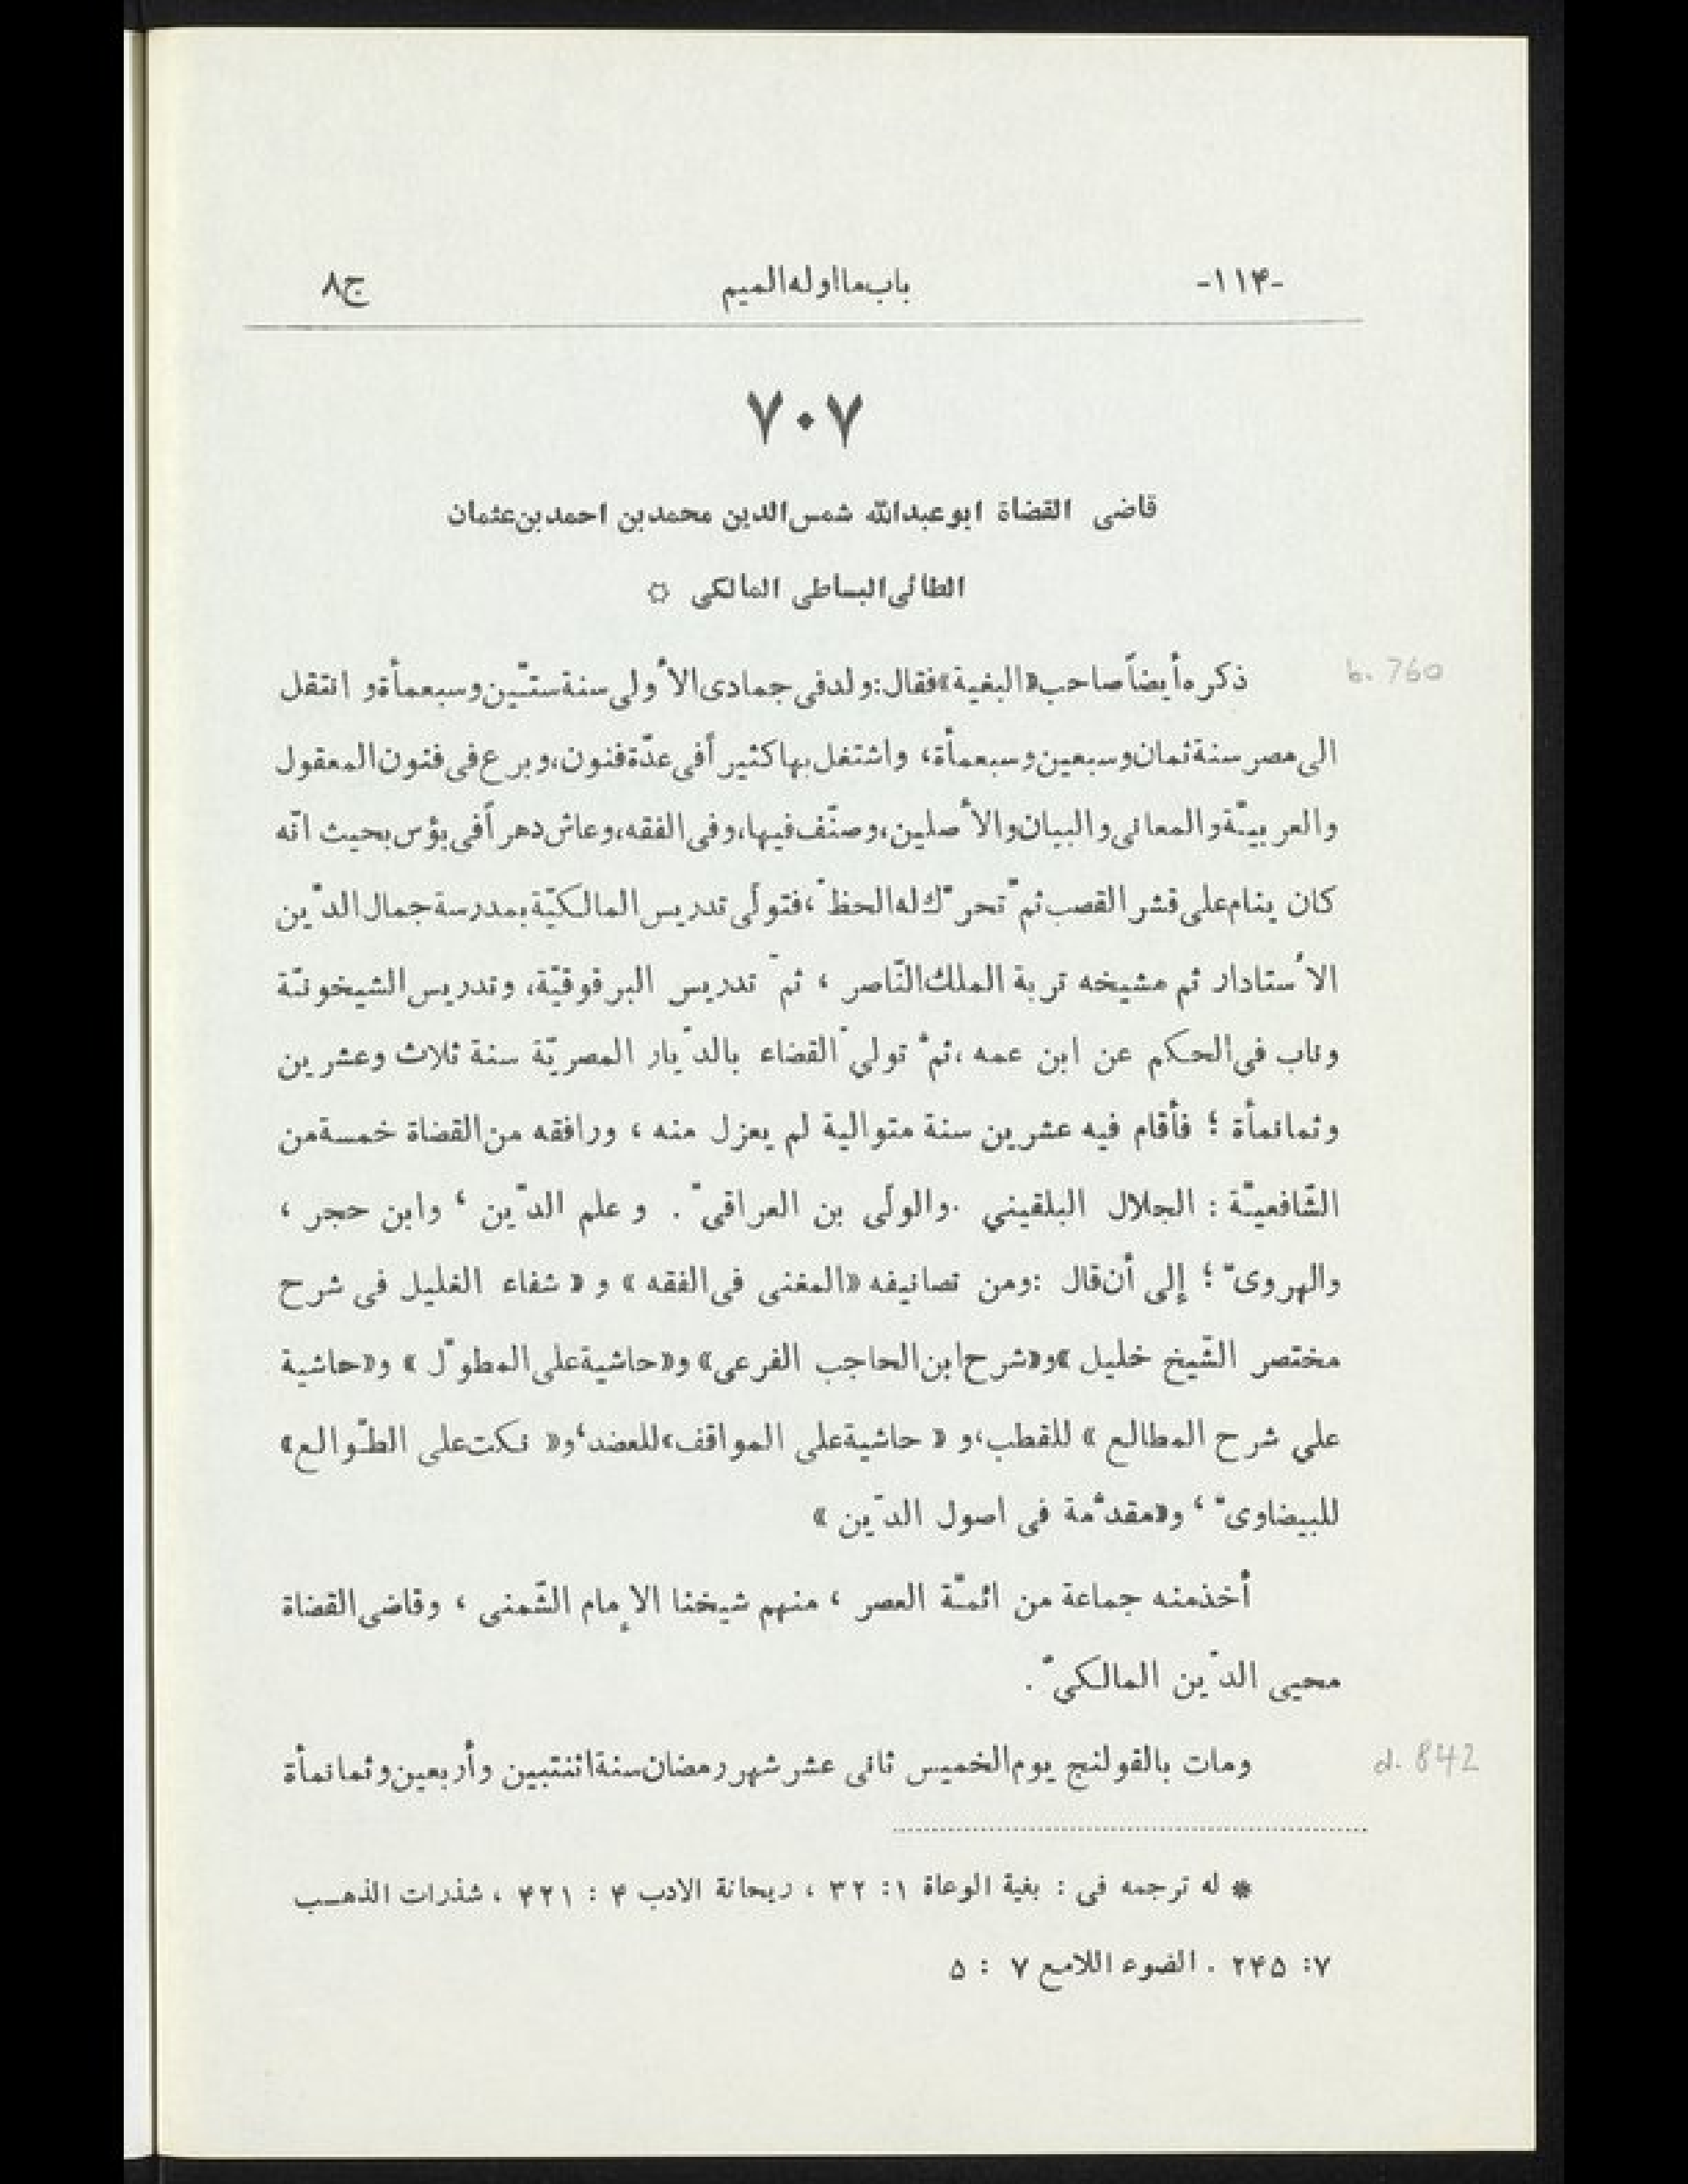 -۱۱۴- باب ما اوله الميم ج۸
۷۰۷
قاضى القضاة ابو عبدالله شمس الدين محمد بن احمد بن عثمان
الطائى البساطى المالكى ☼
ذكره أيضاً صاحب «البغية» فقال: ولد فى جمادى الأولى سنة ستّين وسبعمأة و انتقل
b. 760
الى مصر سنة ثمان وسبعين وسبعمأة، واشتغل بها كثيراً فى عدّة فنون، وبرع فى فنون المعقول
والعربيّة والمعانى والبيان والأصلين، وصنّف فيها، وفى الفقه، وعاش دهراً فى بؤس بحيث انّه
كان ينام على قشر القصب ثمّ تحرّك له الحظّ، فتولّى تدريس المالكيّة بمدرسة جمال الدّين
الأستادار ثم مشيخه تربة الملك النّاصر ، ثمّ تدريس البرقوقيّة، وتدريس الشيخونيّة
وناب فى الحكم عن ابن عمه ، ثمّ تولىّ القضاء بالدّيار المصريّة سنة ثلاث وعشرين
وثمانمأة ؛ فأقام فيه عشرين سنة متوالية لم يعزل منه ، ورافقه من القضاة خمسة من
الشّافعيّة : الجلال البلقيني . والولّى بن العراقىّ . و علم الدّين ، وابن حجر ،
والهروىّ ؛ إلى أن قال : ومن تصانيفه «المغنى فى الفقه » و « شفاء الغليل فى شرح
مختصر الشّيخ خليل » و«شرح ابن الحاجب الفرعى» و«حاشية على المطوّل » و«حاشية
على شرح المطالع » للقطب، و « حاشية على المواقف» للعضد، و« نكت على الطّوالع»
للبيضاوىّ ، و«مقدّمة فى اصول الدّين »
أخذ منه جماعة من ائمّة العصر ، منهم شيخنا الإمام الشّمنى ، وقاضى القضاة
محيى الدّين المالكىّ .
ومات بالقولنج يوم الخميس ثانى عشر شهر رمضان سنة اثنتيين وأربعين وثمانمأة
d. 842
* له ترجمه فى : بغية الوعاة ۱: ۳۲ ، ريحانة الادب ۴ : ۴۲۱ ، شذرات الذهـب
۷: ۲۴۵ . الضوء اللامع ۷ : ۵